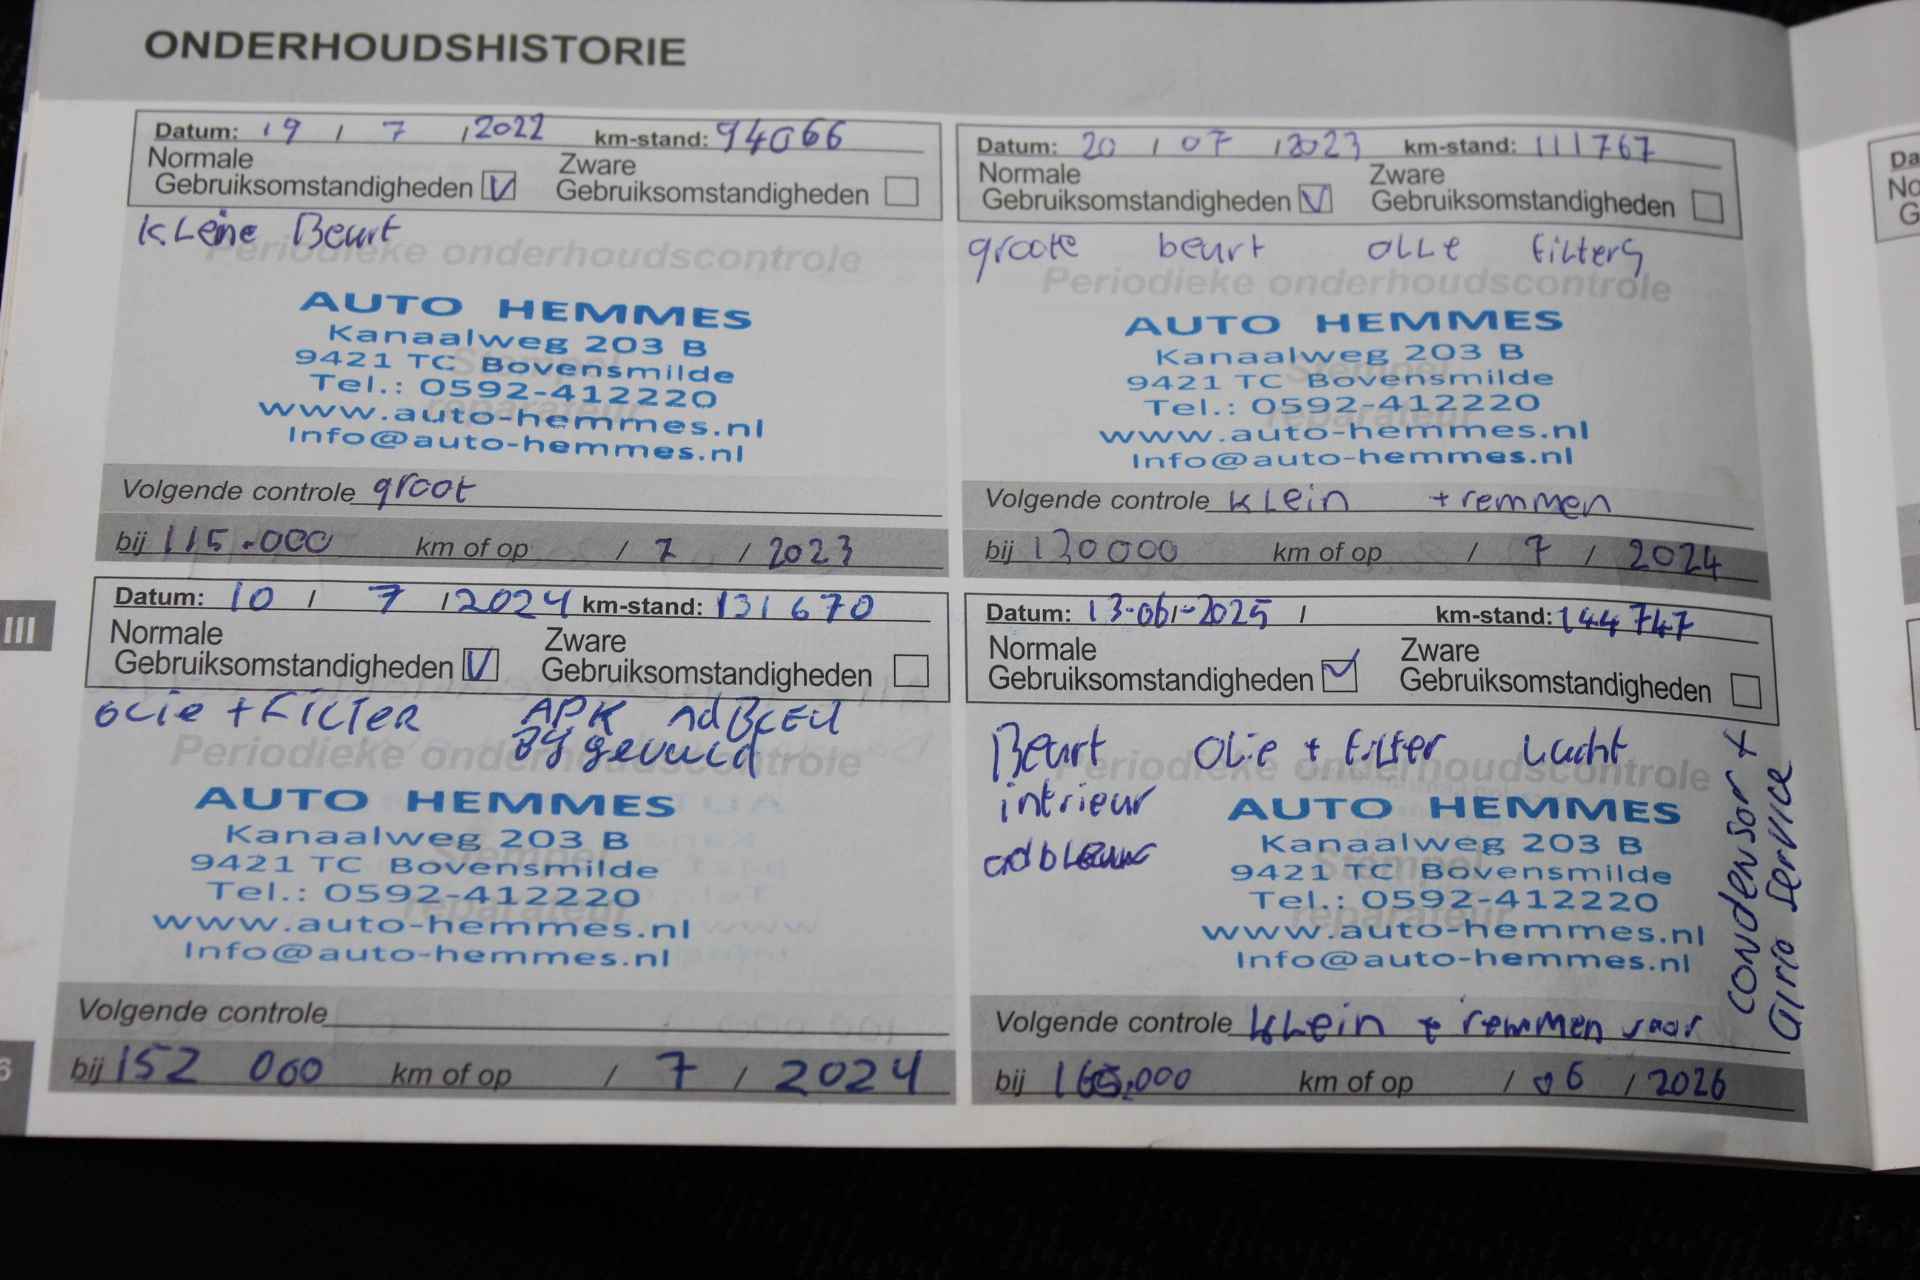 ONDERHOUDSHISTORIE
Datum: 19 / 7 / 2022 km-stand: 94066
Normale Zware
Gebruiksomstandigheden V Gebruiksomstandigheden
Kleine Beurt
Periodieke onderhoudscontrole
Stempel
reparateur
AUTO HEMMES
Kanaalweg 203 B
9421 TC Bovensmilde
Tel.: 0592-412220
www.auto-hemmes.nl
Info@auto-hemmes.nl
Volgende controle groot
bij 115.000 km of op / 7 / 2023
Datum: 20 / 07 / 2023 km-stand: 111767
Normale Zware
Gebruiksomstandigheden V Gebruiksomstandigheden
groote beurt olle filters
Periodieke onderhoudscontrole
Stempel
reparateur
AUTO HEMMES
Kanaalweg 203 B
9421 TC Bovensmilde
Tel.: 0592-412220
www.auto-hemmes.nl
Info@auto-hemmes.nl
Volgende controle klein + remmen
bij 130000 km of op / 7 / 2024
III
Datum: 10 / 7 / 2024 km-stand: 131670
Normale Zware
Gebruiksomstandigheden V Gebruiksomstandigheden
olie + Filter APK AdBlEU
By gevuld
Periodieke onderhoudscontrole
Stempel
reparateur
AUTO HEMMES
Kanaalweg 203 B
9421 TC Bovensmilde
Tel.: 0592-412220
www.auto-hemmes.nl
Info@auto-hemmes.nl
Volgende controle
bij 152 000 km of op / 7 / 2024
Datum: 13-06-2025 / km-stand: 144747
Normale Zware
Gebruiksomstandigheden Gebruiksomstandigheden
Beurt Olie + filter Lucht
intrieur
Periodieke onderhoudscontrole
Stempel
reparateur
AUTO HEMMES
Kanaalweg 203 B
9421 TC Bovensmilde
Tel.: 0592-412220
www.auto-hemmes.nl
Info@auto-hemmes.nl
condensor +
Airio Service
Volgende controle klein + remmen
bij km of op / 06 / 2026
6
Da
No
G